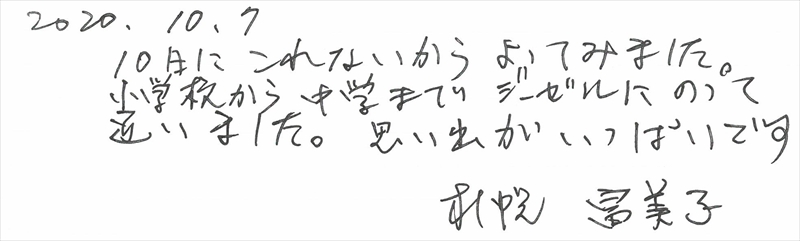 2020.10.7
10月にこれないからよってみました。
小学校から中学まで ジーゼルにのって
近いました。思い出がいっぱいです
札幌 富美子